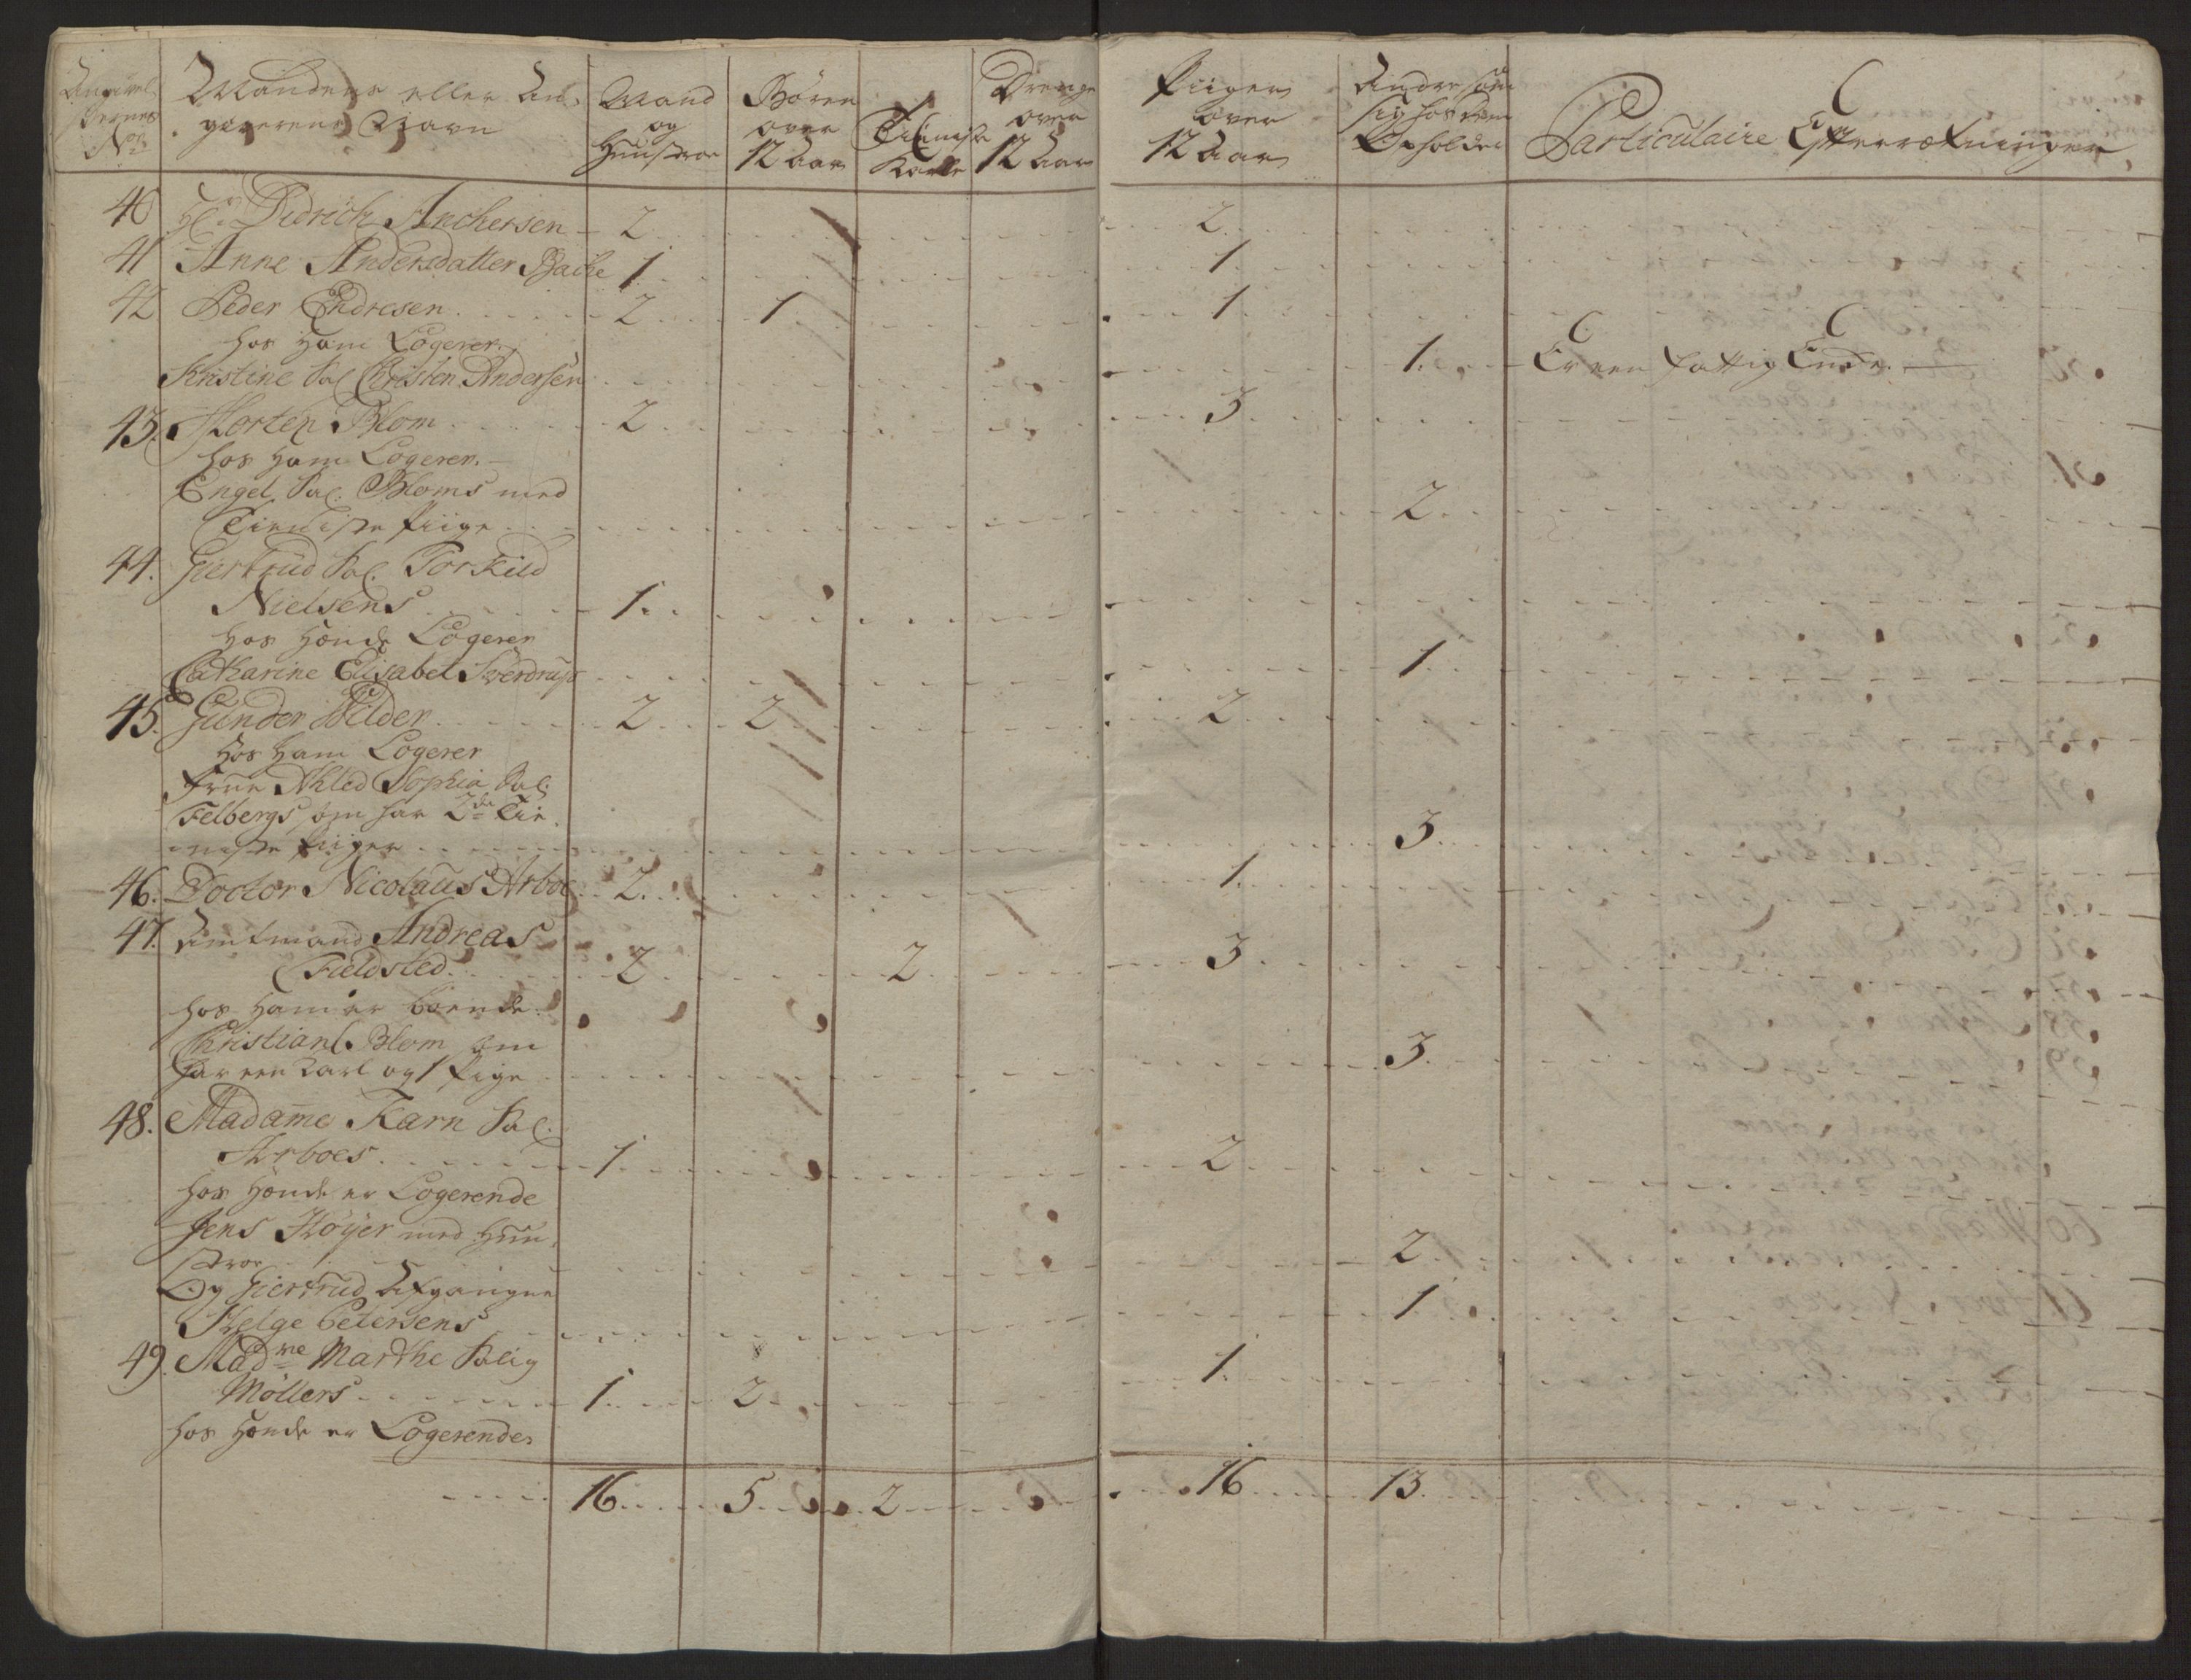 Angivel-
sernes
No
Mandens eller An-
giverens Navn
Mand
og
Hunstroe
Børen
over
12 Aar
Tieniste
Karle
Drenge
over
12 Aar
Piiger
over
12 Aar
Andre som
sig hos dem
Opholder
Particulaire Efterrætninger
40 Hr Didrich Anchersen 2 2
41 Anne Andersdatter Bache 1 1
42 Peder Endresen 2 1 1
hos ham Logerer
Kristine Sal Christen Andersen 1 Er een fattig Encke
43. Morten Blom 2 3
hos ham Logerer.
Engel Sal. Bloms med
Tieniste Piige 2
44. Giertrud Sal. Torkild
Nielsens 1
hos hende Logerer
Catharine Elisabet Sverdrup 1
45. Gunder Wilder 2 2 2
Hos ham Logerer
Frue Ahled Sophia Sal.
Felbergs som har 2de Tie-
niste Piiger 3
46. Doctor Nicolaus Arboe 2 1
47. Amtmand Andreas
Fieldsted 2 2 3
hos ham er boende
Christian Blom som
har een Karl og 1 Pige 3
48. Madame Karn Sal.
Arboes 1 2
hos hende er Logerende
Jens Høyer med Hun-
stroe 2
Og Giertrud Afgangne
Helge Petersens 1
49. Madme Marthe Salig
Møllers 1 2 1
hos hende er Logerende
16 5 2 16 13